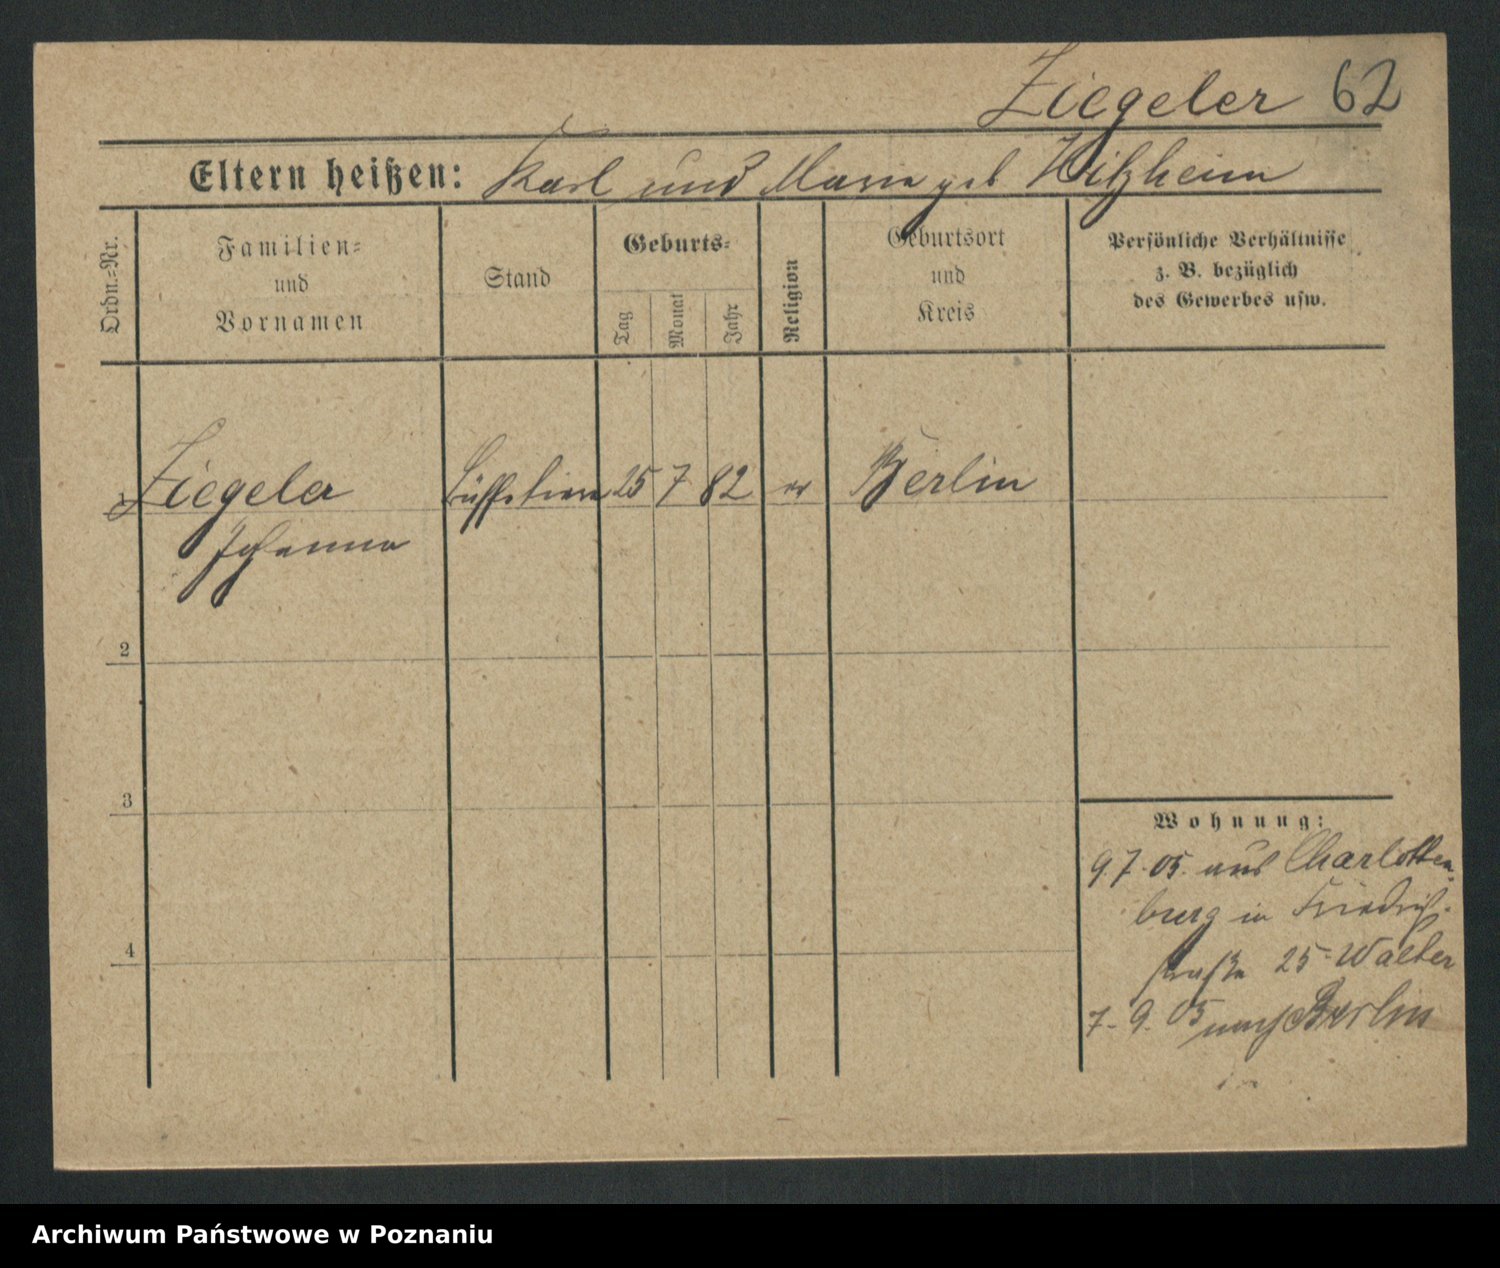 Ziegeler 62
Eltern heißen: Karl und Maria geb
Ordn.=Nr.
Familien=
und
Vornamen
Stand
Geburts=
Tag
Monat
Jahr
Religion
Geburtsort
und
Kreis
Persönliche Verhältnisse
z. B. bezüglich
des Gewerbes usw.
Ziegeler 25 7 82 ev Berlin
Johanna
2
3
4
Wohnung:
9.7.05. aus Charlotten=
burg in Friedrich=
straße 25 Walter
7. 9. 05 nach Berlin
Archiwum Państwowe w Poznaniu